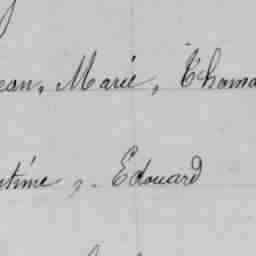 ean, Marie, Thoma
time, Edouard